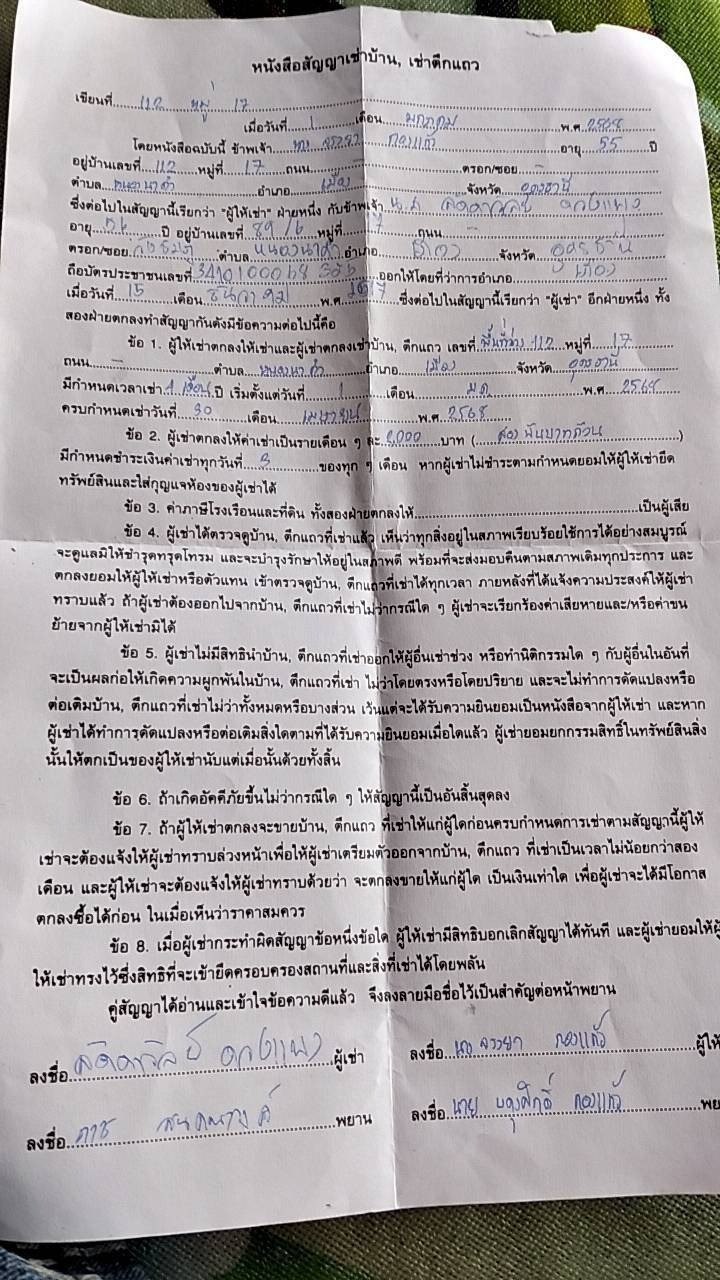 หนังสือสัญญาเช่าบ้าน, เช่าตึกแถว
เขียนที่ 112 หมู่ 17
เมื่อวันที่ 1 เดือน มกราคม พ.ศ. 2568
โดยหนังสือฉบับนี้ ข้าพเจ้า นาง จรรยา กองแก้ว อายุ 55 ปี
อยู่บ้านเลขที่ 112 หมู่ที่ 17 ถนน - ตรอก/ซอย -
ตำบล หนองนาคำ อำเภอ เมือง จังหวัด อุดรธานี
ซึ่งต่อไปในสัญญานี้เรียกว่า "ผู้ให้เช่า" ฝ่ายหนึ่ง กับข้าพเจ้า น.ส.
อายุ ปี อยู่บ้านเลขที่ 89/6 หมู่ที่ 17 ถนน -
ตรอก/ซอย ตำบล หนองนาคำ อำเภอ เมือง จังหวัด อุดรธานี
ถือบัตรประชาชนเลขที่ ออกให้โดยที่ว่าการอำเภอ เมือง
เมื่อวันที่ 15 เดือน ธันวาคม พ.ศ. ซึ่งต่อไปในสัญญานี้เรียกว่า "ผู้เช่า" อีกฝ่ายหนึ่ง ทั้ง
สองฝ่ายตกลงทำสัญญากันดังมีข้อความต่อไปนี้คือ
ข้อ 1. ผู้ให้เช่าตกลงให้เช่าและผู้เช่าตกลงเช่าบ้าน, ตึกแถว เลขที่ พื้นที่ว่าง 112 หมู่ที่ 17
ถนน - ตำบล หนองนาคำ อำเภอ เมือง จังหวัด อุดรธานี
มีกำหนดเวลาเช่า เดือน ปี เริ่มตั้งแต่วันที่ 1 เดือน ม.ค. พ.ศ. 2568
ครบกำหนดเช่าวันที่ 30 เดือน เมษายน พ.ศ. 2568
ข้อ 2. ผู้เช่าตกลงให้ค่าเช่าเป็นรายเดือน ๆ ละ 2,000 บาท (สองพันบาทถ้วน)
มีกำหนดชำระเงินค่าเช่าทุกวันที่ 3 ของทุก ๆ เดือน หากผู้เช่าไม่ชำระตามกำหนดยอมให้ผู้ให้เช่ายึด
ทรัพย์สินและใส่กุญแจห้องของผู้เช่าได้
ข้อ 3. ค่าภาษีโรงเรือนและที่ดิน ทั้งสองฝ่ายตกลงให้ เป็นผู้เสีย
ข้อ 4. ผู้เช่าได้ตรวจดูบ้าน, ตึกแถวที่เช่าแล้ว เห็นว่าทุกสิ่งอยู่ในสภาพเรียบร้อยใช้การได้อย่างสมบูรณ์
จะดูแลมิให้ชำรุดทรุดโทรม และจะบำรุงรักษาให้อยู่ในสภาพดี พร้อมที่จะส่งมอบคืนตามสภาพเดิมทุกประการ และ
ตกลงยอมให้ผู้ให้เช่าหรือตัวแทน เข้าตรวจดูบ้าน, ตึกแถวที่เช่าได้ทุกเวลา ภายหลังที่ได้แจ้งความประสงค์ให้ผู้เช่า
ทราบแล้ว ถ้าผู้เช่าต้องออกไปจากบ้าน, ตึกแถวที่เช่าไม่ว่ากรณีใด ๆ ผู้เช่าจะเรียกร้องค่าเสียหายและ/หรือค่าขน
ย้ายจากผู้ให้เช่ามิได้
ข้อ 5. ผู้เช่าไม่มีสิทธินำบ้าน, ตึกแถวที่เช่าออกให้ผู้อื่นเช่าช่วง หรือทำนิติกรรมใด ๆ กับผู้อื่นในอันที่
จะเป็นผลก่อให้เกิดความผูกพันในบ้าน, ตึกแถวที่เช่า ไม่ว่าโดยตรงหรือโดยปริยาย และจะไม่ทำการดัดแปลงหรือ
ต่อเติมบ้าน, ตึกแถวที่เช่าไม่ว่าทั้งหมดหรือบางส่วน เว้นแต่จะได้รับความยินยอมเป็นหนังสือจากผู้ให้เช่า และหาก
ผู้เช่าได้ทำการดัดแปลงหรือต่อเติมสิ่งใดตามที่ได้รับความยินยอมเมื่อใดแล้ว ผู้เช่ายอมยกกรรมสิทธิ์ในทรัพย์สินสิ่ง
นั้นให้ตกเป็นของผู้ให้เช่านับแต่เมื่อนั้นด้วยทั้งสิ้น
ข้อ 6. ถ้าเกิดอัคคีภัยขึ้นไม่ว่ากรณีใด ๆ ให้สัญญานี้เป็นอันสิ้นสุดลง
ข้อ 7. ถ้าผู้ให้เช่าตกลงจะขายบ้าน, ตึกแถว ที่เช่าให้แก่ผู้ใดก่อนครบกำหนดการเช่าตามสัญญานี้ผู้ให้
เช่าจะต้องแจ้งให้ผู้เช่าทราบล่วงหน้าเพื่อให้ผู้เช่าเตรียมตัวออกจากบ้าน, ตึกแถว ที่เช่าเป็นเวลาไม่น้อยกว่าสอง
เดือน และผู้ให้เช่าจะต้องแจ้งให้ผู้เช่าทราบด้วยว่า จะตกลงขายให้แก่ผู้ใด เป็นเงินเท่าใด เพื่อผู้เช่าจะได้มีโอกาส
ตกลงซื้อได้ก่อน ในเมื่อเห็นว่าราคาสมควร
ข้อ 8. เมื่อผู้เช่ากระทำผิดสัญญาข้อหนึ่งข้อใด ผู้ให้เช่ามีสิทธิบอกเลิกสัญญาได้ทันที และผู้เช่ายอมให้ผู้
ให้เช่าทรงไว้ซึ่งสิทธิที่จะเข้ายึดครอบครองสถานที่และสิ่งที่เช่าได้โดยพลัน
คู่สัญญาได้อ่านและเข้าใจข้อความดีแล้ว จึงลงลายมือชื่อไว้เป็นสำคัญต่อหน้าพยาน
ลงชื่อ ผู้เช่า ลงชื่อ นาง จรรยา กองแก้ว ผู้ให้
ลงชื่อ พยาน ลงชื่อ นาย กองแก้ว พย